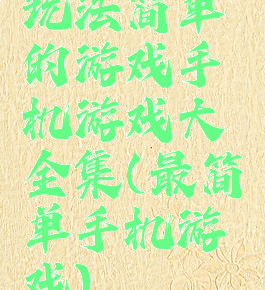 玩法简单
的游戏手
机游戏大
全集(最简
单手机游
戏)